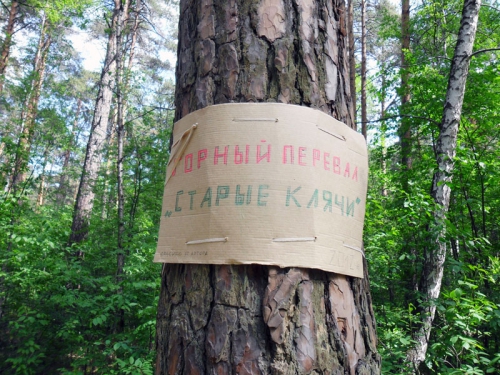 ГОРНЫЙ ПЕРЕВАЛ
„СТАРЫЕ КЛЯЧИ"